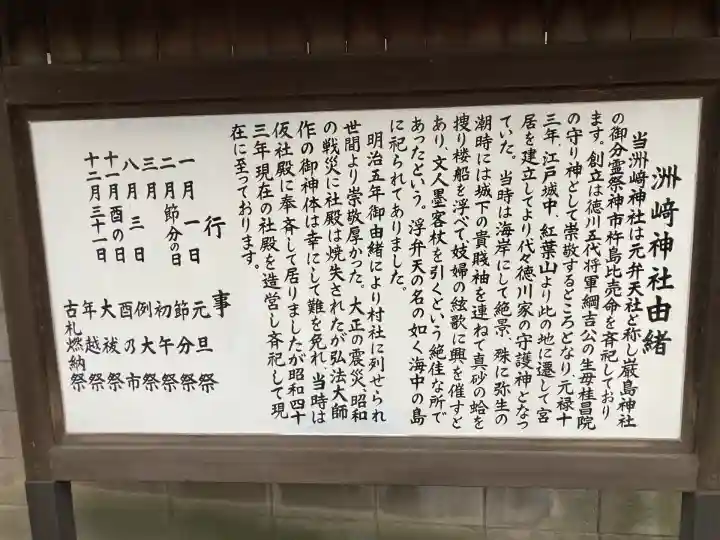 洲﨑神社由緒
当洲﨑神社は元弁天社と称し厳島神社
の御分霊祭神市杵島比売命を斉祀しており
ます。創立は徳川五代将軍綱吉公の生母桂昌院
の守り神として崇敬するところとなり、元禄十
三年、江戸城中、紅葉山より此の地に遷して宮
居を建立してより代々徳川家の守護神となっ
ていた。当時は海岸にして絶景、殊に弥生の
潮時には城下の貴賤袖を連ねて真砂の蛤を
捜り楼船を浮べて妓婦の絃歌に興を催すと
あり、文人墨客杖を引くという絶佳な所で
あったという。浮弁天の名の如く海中の島
に祀られてありました。
明治五年御由緒により村社に列せられ
世間より崇敬厚かった。大正の震災、昭和
の戦災に社殿は焼失されたが弘法大師
作の御神体は幸にして難を免れ、当時は
仮社殿に奉斉して居りましたが昭和四十
三年現在の社殿を造営し斉祀して現
在に至っております。
行事
一月一日 元旦祭
二月節分の日 節分祭
三月 初午祭
八月三日 例大祭
十一月酉の日 酉乃市
十二月三十一日 大祓祭
年越祭
古札燃納祭